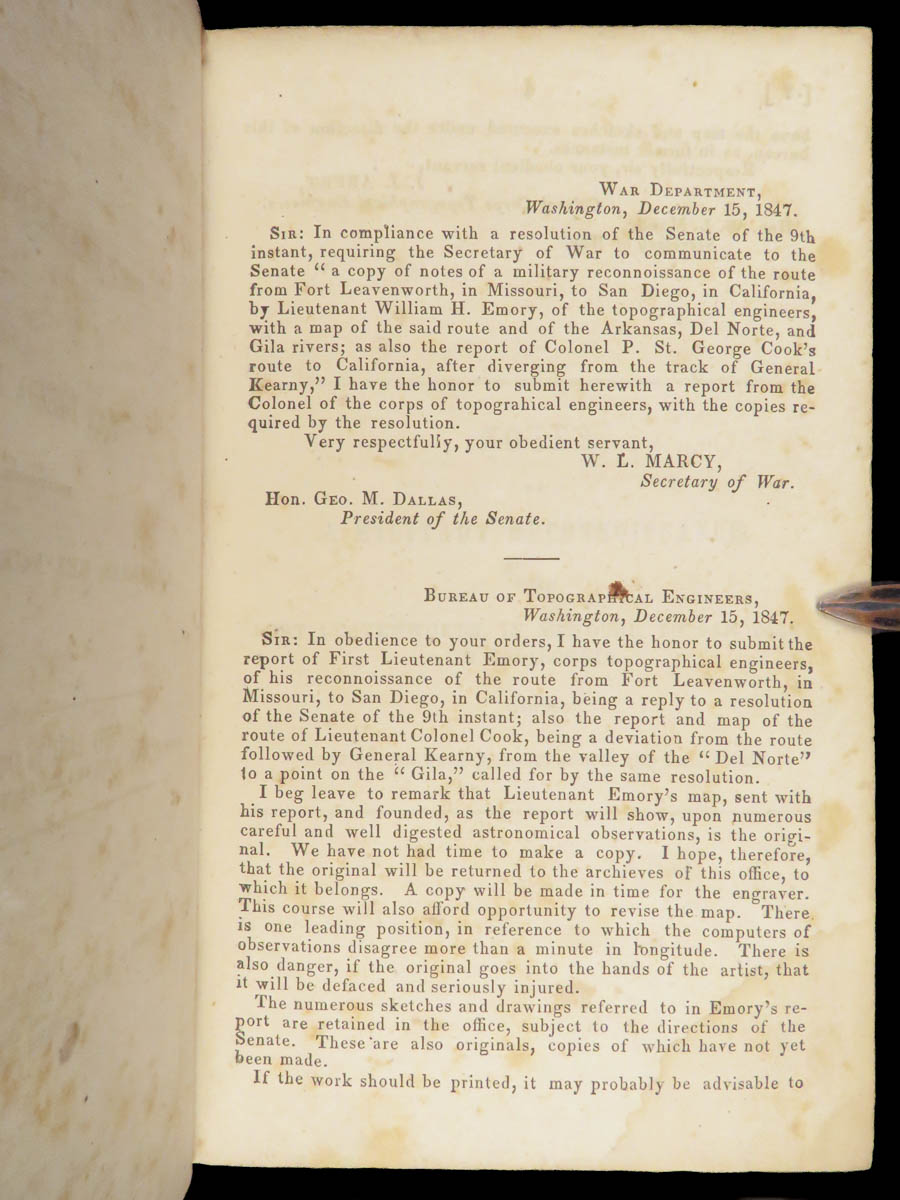 War Department,
Washington, December 15, 1847.
Sir: In compliance with a resolution of the Senate of the 9th
instant, requiring the Secretary of War to communicate to the
Senate “ a copy of notes of a military reconnoissance of the route
from Fort Leavenworth, in Missouri, to San Diego, in California,
by Lieutenant William H. Emory, of the topographical engineers,
with a map of the said route and of the Arkansas, Del Norte, and
Gila rivers; as also the report of Colonel P. St. George Cook’s
route to California, after diverging from the track of General
Kearny,” I have the honor to submit herewith a report from the
Colonel of the corps of topograhical engineers, with the copies re-
quired by the resolution.
Very respectfully, your obedient servant,
W. L. MARCY,
Secretary of War.
Hon. Geo. M. Dallas,
President of the Senate.
Bureau of Topographical Engineers,
Washington, December 15, 1847.
Sir: In obedience to your orders, I have the honor to submit the
report of First Lieutenant Emory, corps topographical engineers,
of his reconnoissance of the route from Fort Leavenworth, in
Missouri, to San Diego, in California, being a reply to a resolution
of the Senate of the 9th instant; also the report and map of the
route of Lieutenant Colonel Cook, being a deviation from the route
followed by General Kearny, from the valley of the “ Del Norte”
to a point on the “ Gila,” called for by the same resolution.
I beg leave to remark that Lieutenant Emory’s map, sent with
his report, and founded, as the report will show, upon numerous
careful and well digested astronomical observations, is the origi-
nal. We have not had time to make a copy. I hope, therefore,
that the original will be returned to the archieves of this office, to
which it belongs. A copy will be made in time for the engraver.
This course will also afford opportunity to revise the map. There
is one leading position, in reference to which the computers of
observations disagree more than a minute in longitude. There is
also danger, if the original goes into the hands of the artist, that
it will be defaced and seriously injured.
The numerous sketches and drawings referred to in Emory’s re-
port are retained in the office, subject to the directions of the
Senate. These are also originals, copies of which have not yet
been made.
If the work should be printed, it may probably be advisable to